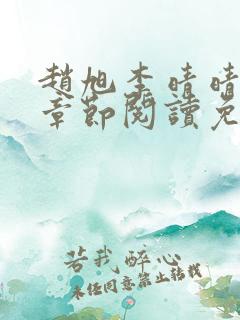 趙旭李晴晴
章節閱讀免
若我醉心
未经同意禁止转载